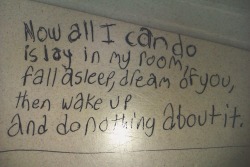 Now all I can do
is lay in my room,
fall asleep, dream of you,
then wake up
and do nothing about it.